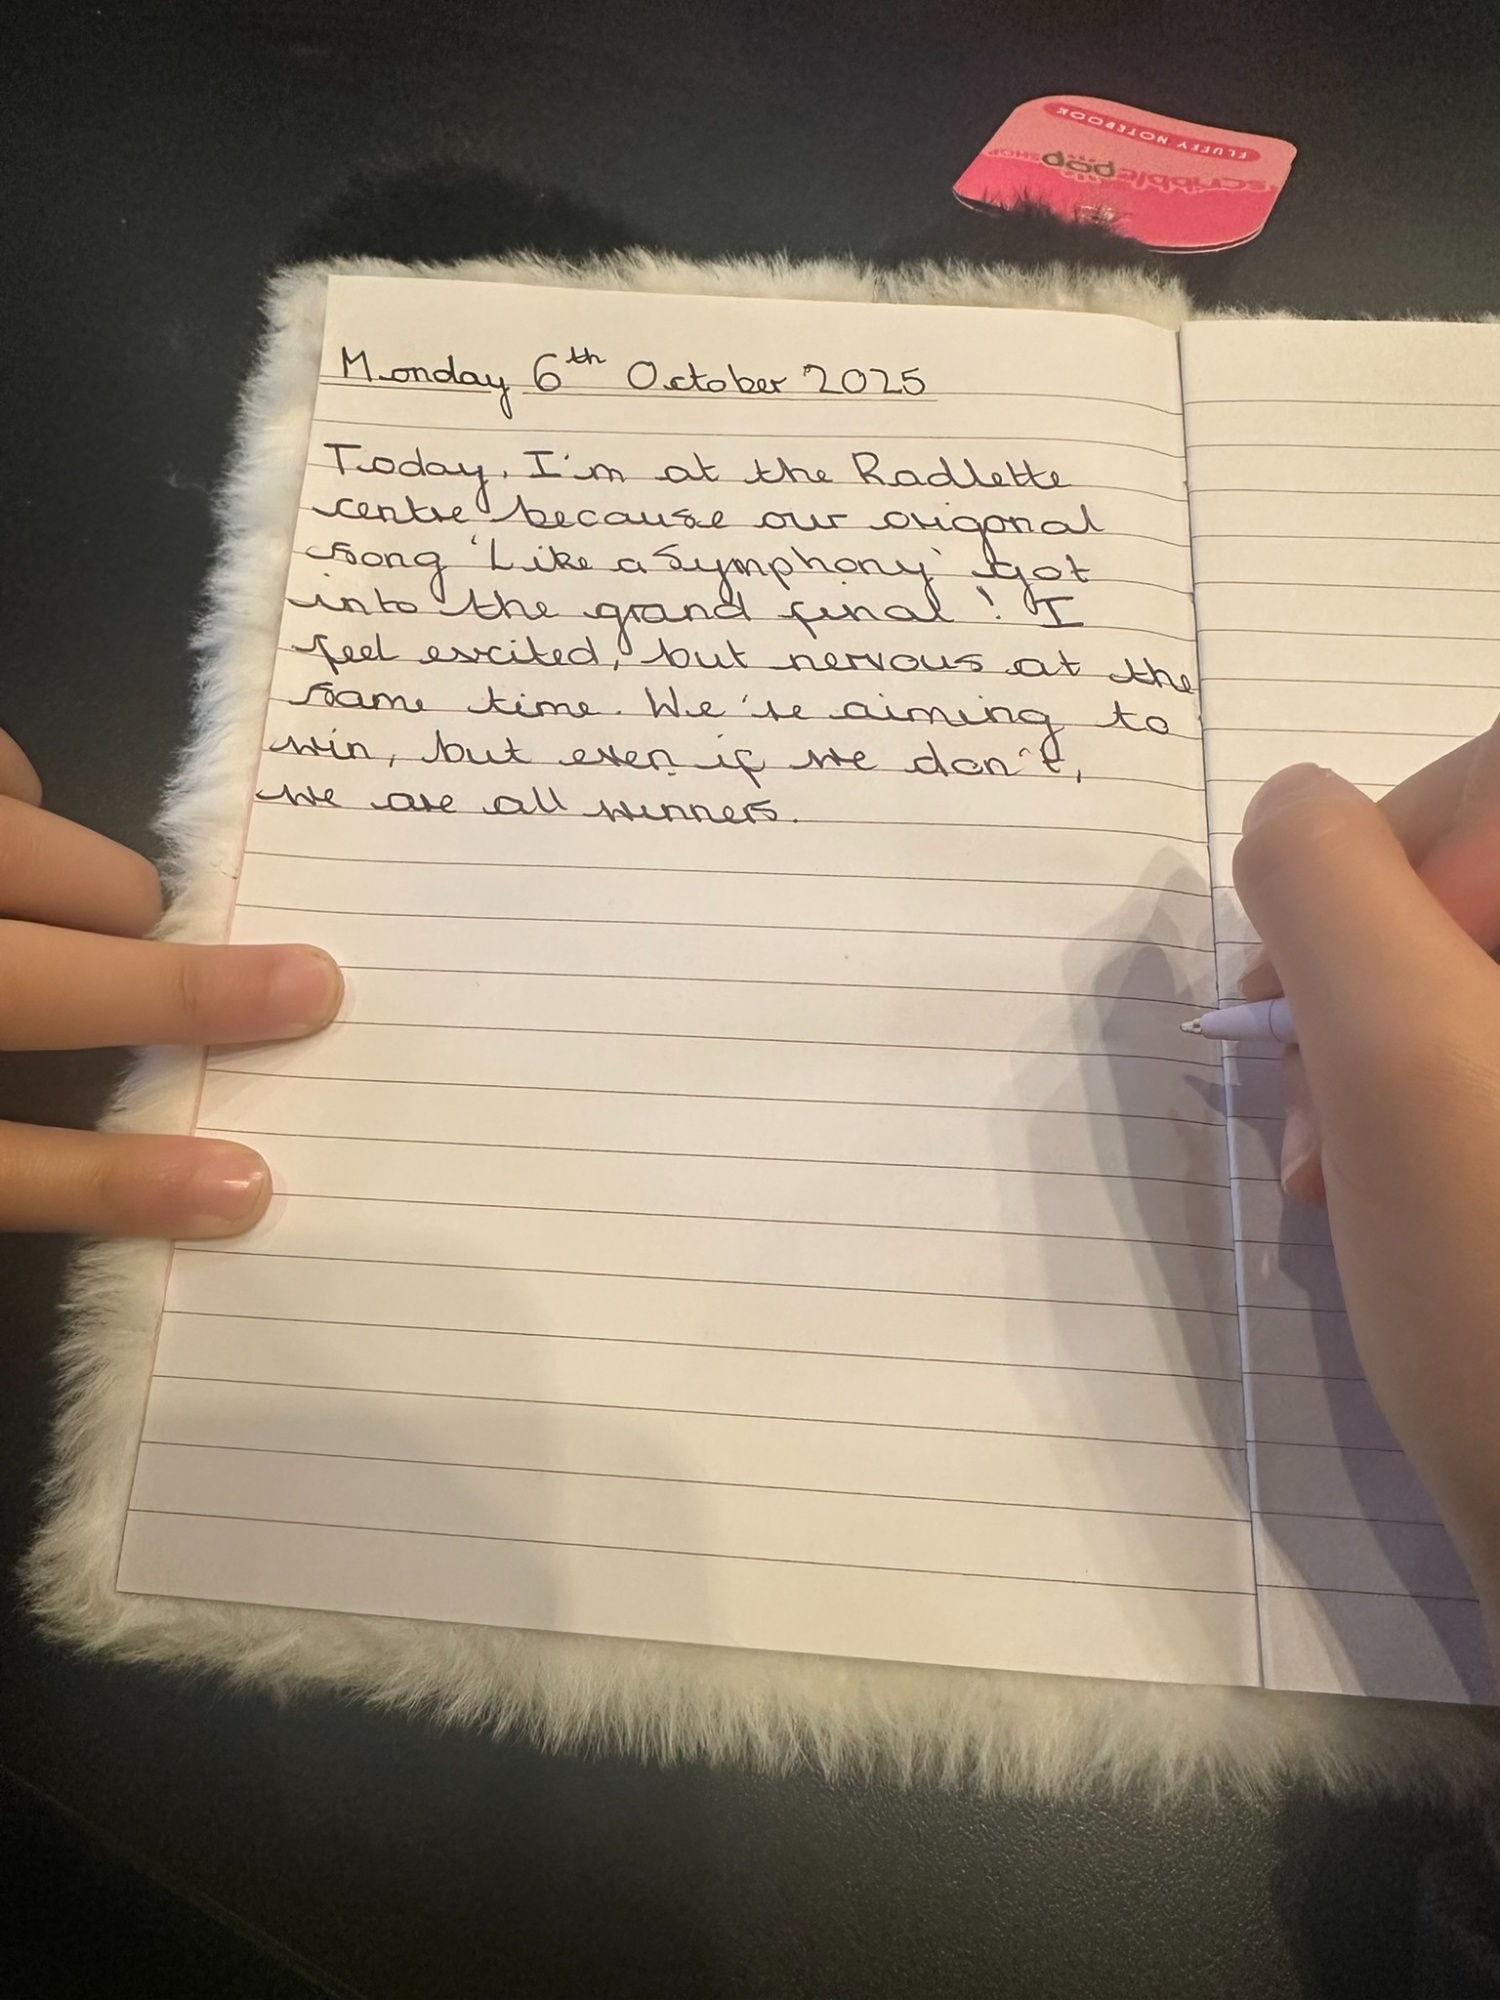 FLUFFY NOTEBOOK
scribblepop
SHOP
Monday 6th October 2025
Today, I'm at the Radlette
centre because our origonal
song 'Like a Symphony' got
into the grand final! I
feel excited, but nervous at the
same time. We're aiming to
win, but even if we don't,
we are all winners.